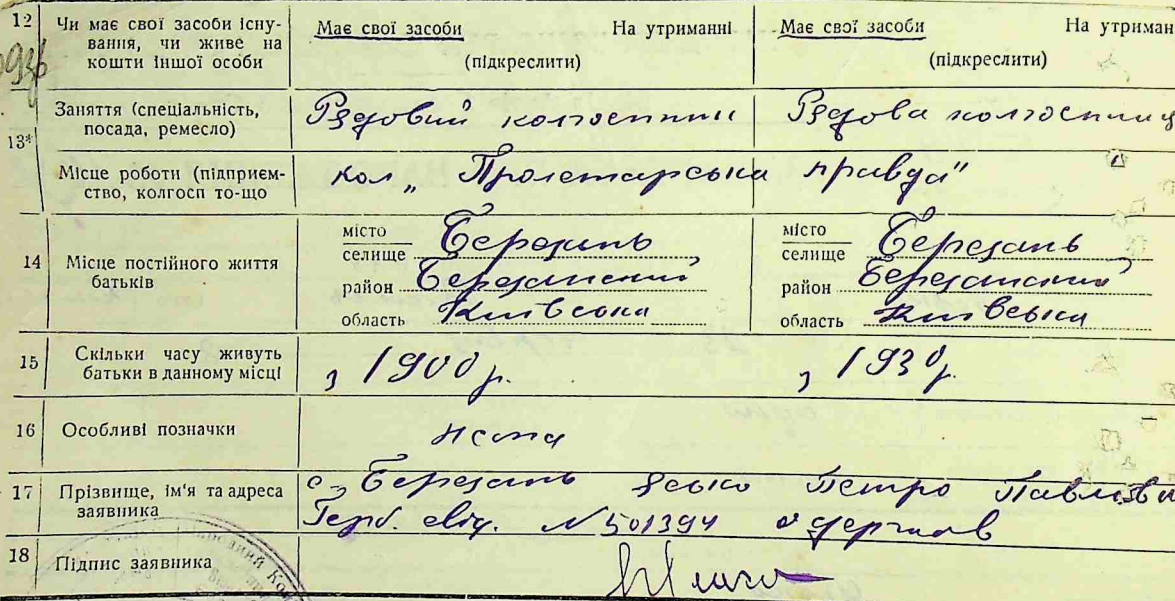 12 Чи має свої засоби існу-
вання, чи живе на
кошти іншої особи
Має свої засоби На утриманні
(підкреслити)
Має свої засоби На утриман
(підкреслити)
13* Заняття (спеціальність,
посада, ремесло)
Рядовий колгоспник
Рядова колгоспниця
Місце роботи (підприєм-
ство, колгосп то-що
кол „Пролетарська правда"
14 Місце постійного життя
батьків
місто
селище Березань
район Березанський
область Київська
місто
селище Березань
район Березанський
область Київська
15 Скільки часу живуть
батьки в данному місці
з 1900 р.
з 1930 р.
16 Особливі позначки
нема
17 Прізвище, ім'я та адреса
заявника
с. Березань Петро Павлови
Герб. свід. № 501394 одержав
18 Підпис заявника